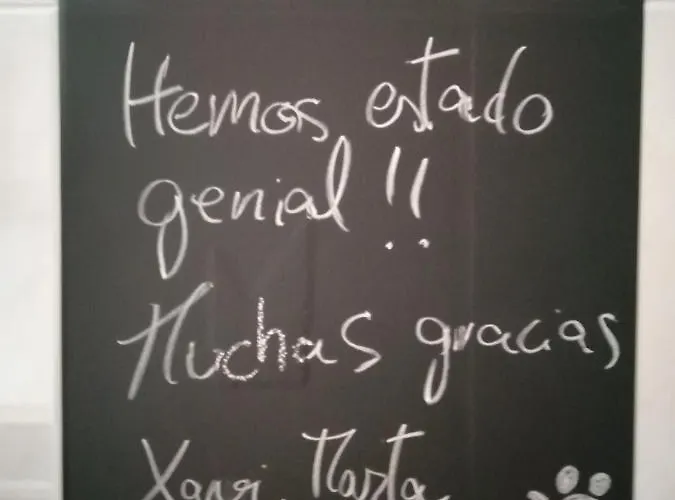 Hemos estado
genial!!
Muchas gracias
Xavi, Marta